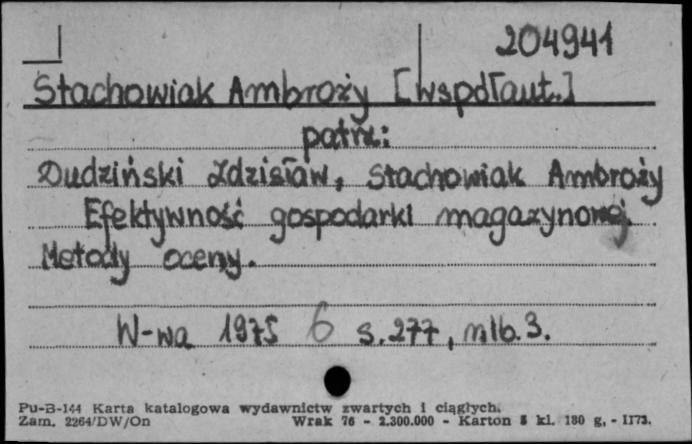 204941
Stachowiak Ambroży [współaut.]
patrz:
Dudziński Zdzisław, Stachowiak Ambroży
Efektywność gospodarki magazynowej.
Metody oceny.
W-wa 1975 6 s. 277, nlb. 3.
Pu-B-144 Karta katalogowa wydawnictw zwartych i ciągłych.
Zam. 2264/DW/On Wrak 76 - 2.300.000 - Karton kl. 180 g, - II73.